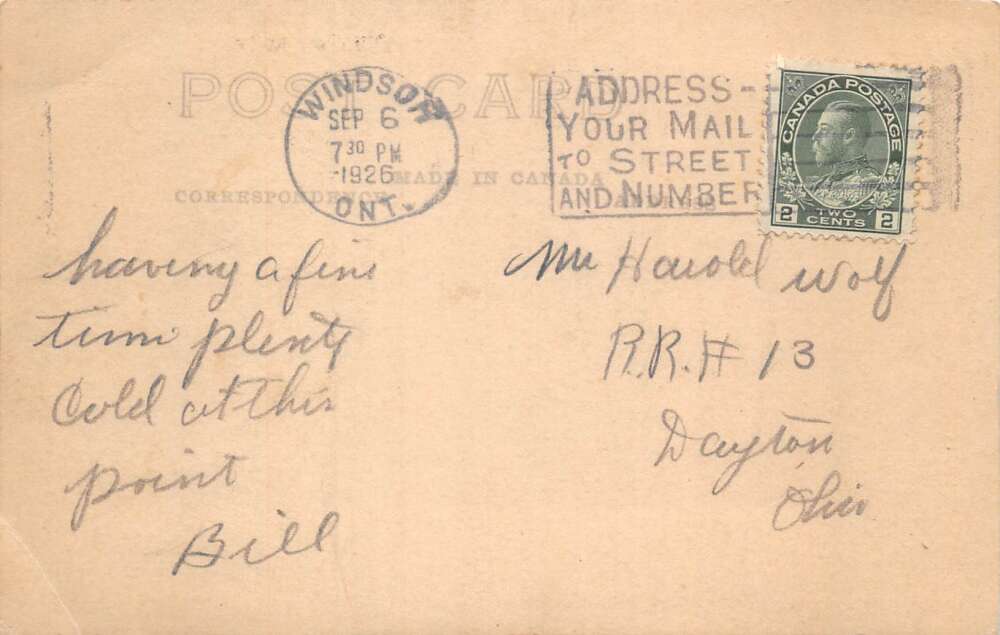 POST CARD
WINDSOR
SEP 6
7 30 PM
1926
ONT.
ADDRESS
YOUR MAIL
TO STREET
AND NUMBER
CANADA POSTAGE
2 TWO CENTS 2
MADE IN CANADA
CORRESPONDENCE
having a fine
time plenty
Cold at this
point
Bill
Mr Harold Wolf
R.R.# 13
Dayton
Ohio